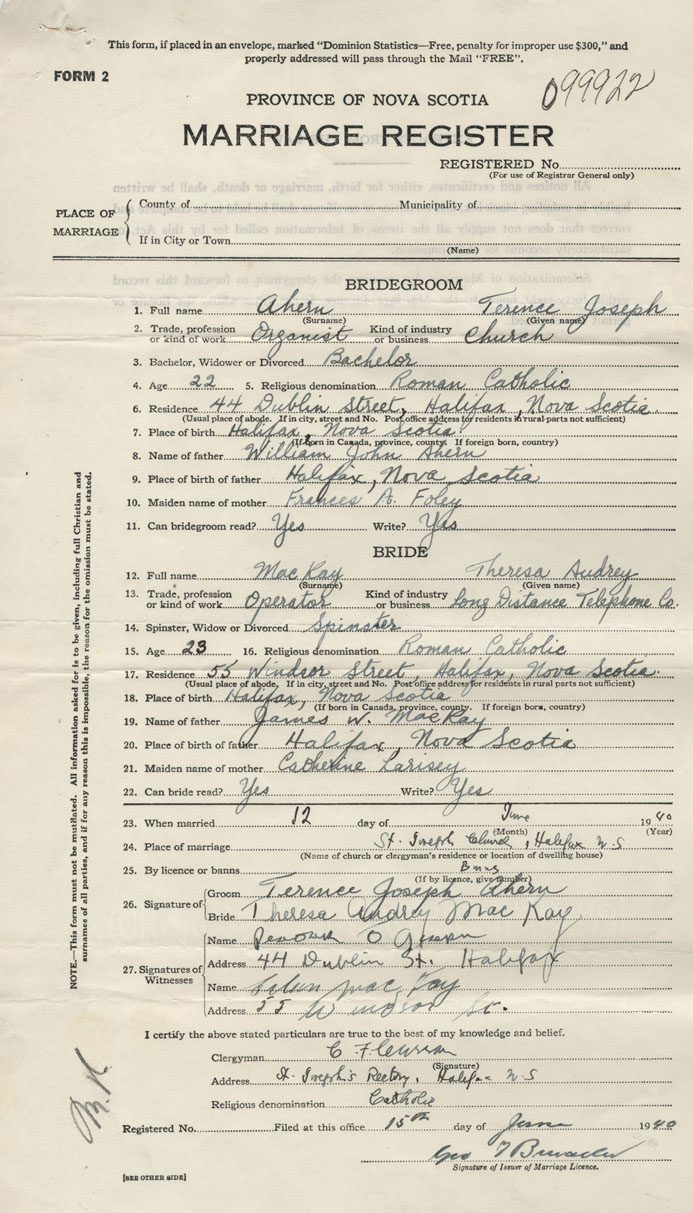 This form, if placed in an envelope, marked "Dominion Statistics—Free, penalty for improper use $300," and
properly addressed will pass through the Mail "FREE".
FORM 2
099922
PROVINCE OF NOVA SCOTIA
MARRIAGE REGISTER
REGISTERED No.
(For use of Registrar General only)
PLACE OF MARRIAGE
County of Municipality of
If in City or Town
(Name)
BRIDEGROOM
1. Full name Ahern Terence Joseph
(Surname) (Given name)
2. Trade, profession or kind of work Organist Kind of industry or business Church
3. Bachelor, Widower or Divorced Bachelor
4. Age 22 5. Religious denomination Roman Catholic
6. Residence 44 Dublin Street, Halifax, Nova Scotia
(Usual place of abode. If in city, street and No. Post office address for residents in rural parts not sufficient)
7. Place of birth Halifax, Nova Scotia
(If born in Canada, province, county. If foreign born, country)
8. Name of father William John Ahern
9. Place of birth of father Halifax, Nova Scotia
10. Maiden name of mother Frances A. Foley
11. Can bridegroom read? Yes Write? Yes
BRIDE
12. Full name MacKay Theresa Audrey
(Surname) (Given name)
13. Trade, profession or kind of work Operator Kind of industry or business Long Distance Telephone Co.
14. Spinster, Widow or Divorced Spinster
15. Age 23 16. Religious denomination Roman Catholic
17. Residence 55 Windsor Street, Halifax, Nova Scotia.
(Usual place of abode. If in city, street and No. Post office address for residents in rural parts not sufficient)
18. Place of birth Halifax, Nova Scotia
(If born in Canada, province, county. If foreign born, country)
19. Name of father James W. MacKay
20. Place of birth of father Halifax, Nova Scotia
21. Maiden name of mother Catherine Larisey
22. Can bride read? Yes Write? Yes
23. When married 12 day of June 1940
(Month) (Year)
24. Place of marriage St. Joseph Church, Halifax N.S
(Name of church or clergyman's residence or location of dwelling house)
25. By licence or banns
(If by licence, give number)
26. Signature of
Groom Terence Joseph Ahern
Bride Theresa Audrey MacKay
27. Signatures of Witnesses
Name
Address 44 Dublin St. Halifax
Name MacKay
Address 55 Windsor St.
I certify the above stated particulars are true to the best of my knowledge and belief.
Clergyman C
(Signature)
Address St. Joseph's Rectory, Halifax N.S
Religious denomination Catholic
Registered No. Filed at this office 15th day of June 1940
Geo
Signature of Issuer of Marriage Licence.
[SEE OTHER SIDE]
NOTE.—This form must not be mutilated. All information asked for is to be given, including full Christian and
surnames of all parties, and if for any reason this is impossible, the reason for the omission must be stated.